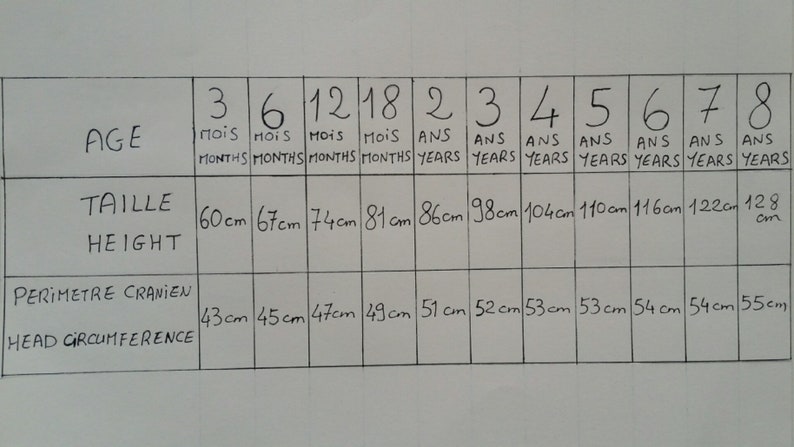 AGE 3 6 12 18 2 3 4 5 6 7 8
MOIS MOIS MOIS MOIS ANS ANS ANS ANS ANS ANS ANS
MONTHS MONTHS MONTHS MONTHS YEARS YEARS YEARS YEARS YEARS YEARS YEARS
TAILLE
HEIGHT
60cm 67cm 74cm 81cm 86cm 98cm 104cm 110cm 116cm 122cm 128 cm
PERIMETRE CRANIEN
HEAD CIRCUMFERENCE
43cm 45cm 47cm 49cm 51cm 52cm 53cm 53cm 54cm 54cm 55cm